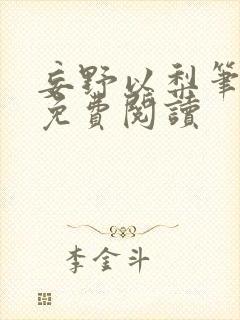 妄野以梨笔
免費閱讀
李金斗